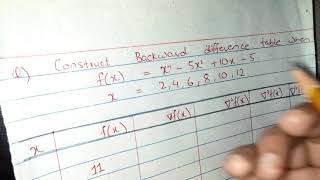 Q) Construct Backward difference table when
f(x) = x⁴ - 5x² + 10x - 5
x = 2, 4, 6, 8, 10, 12
x f(x) ∇f(x) ∇²f(x) ∇³f(x)
11